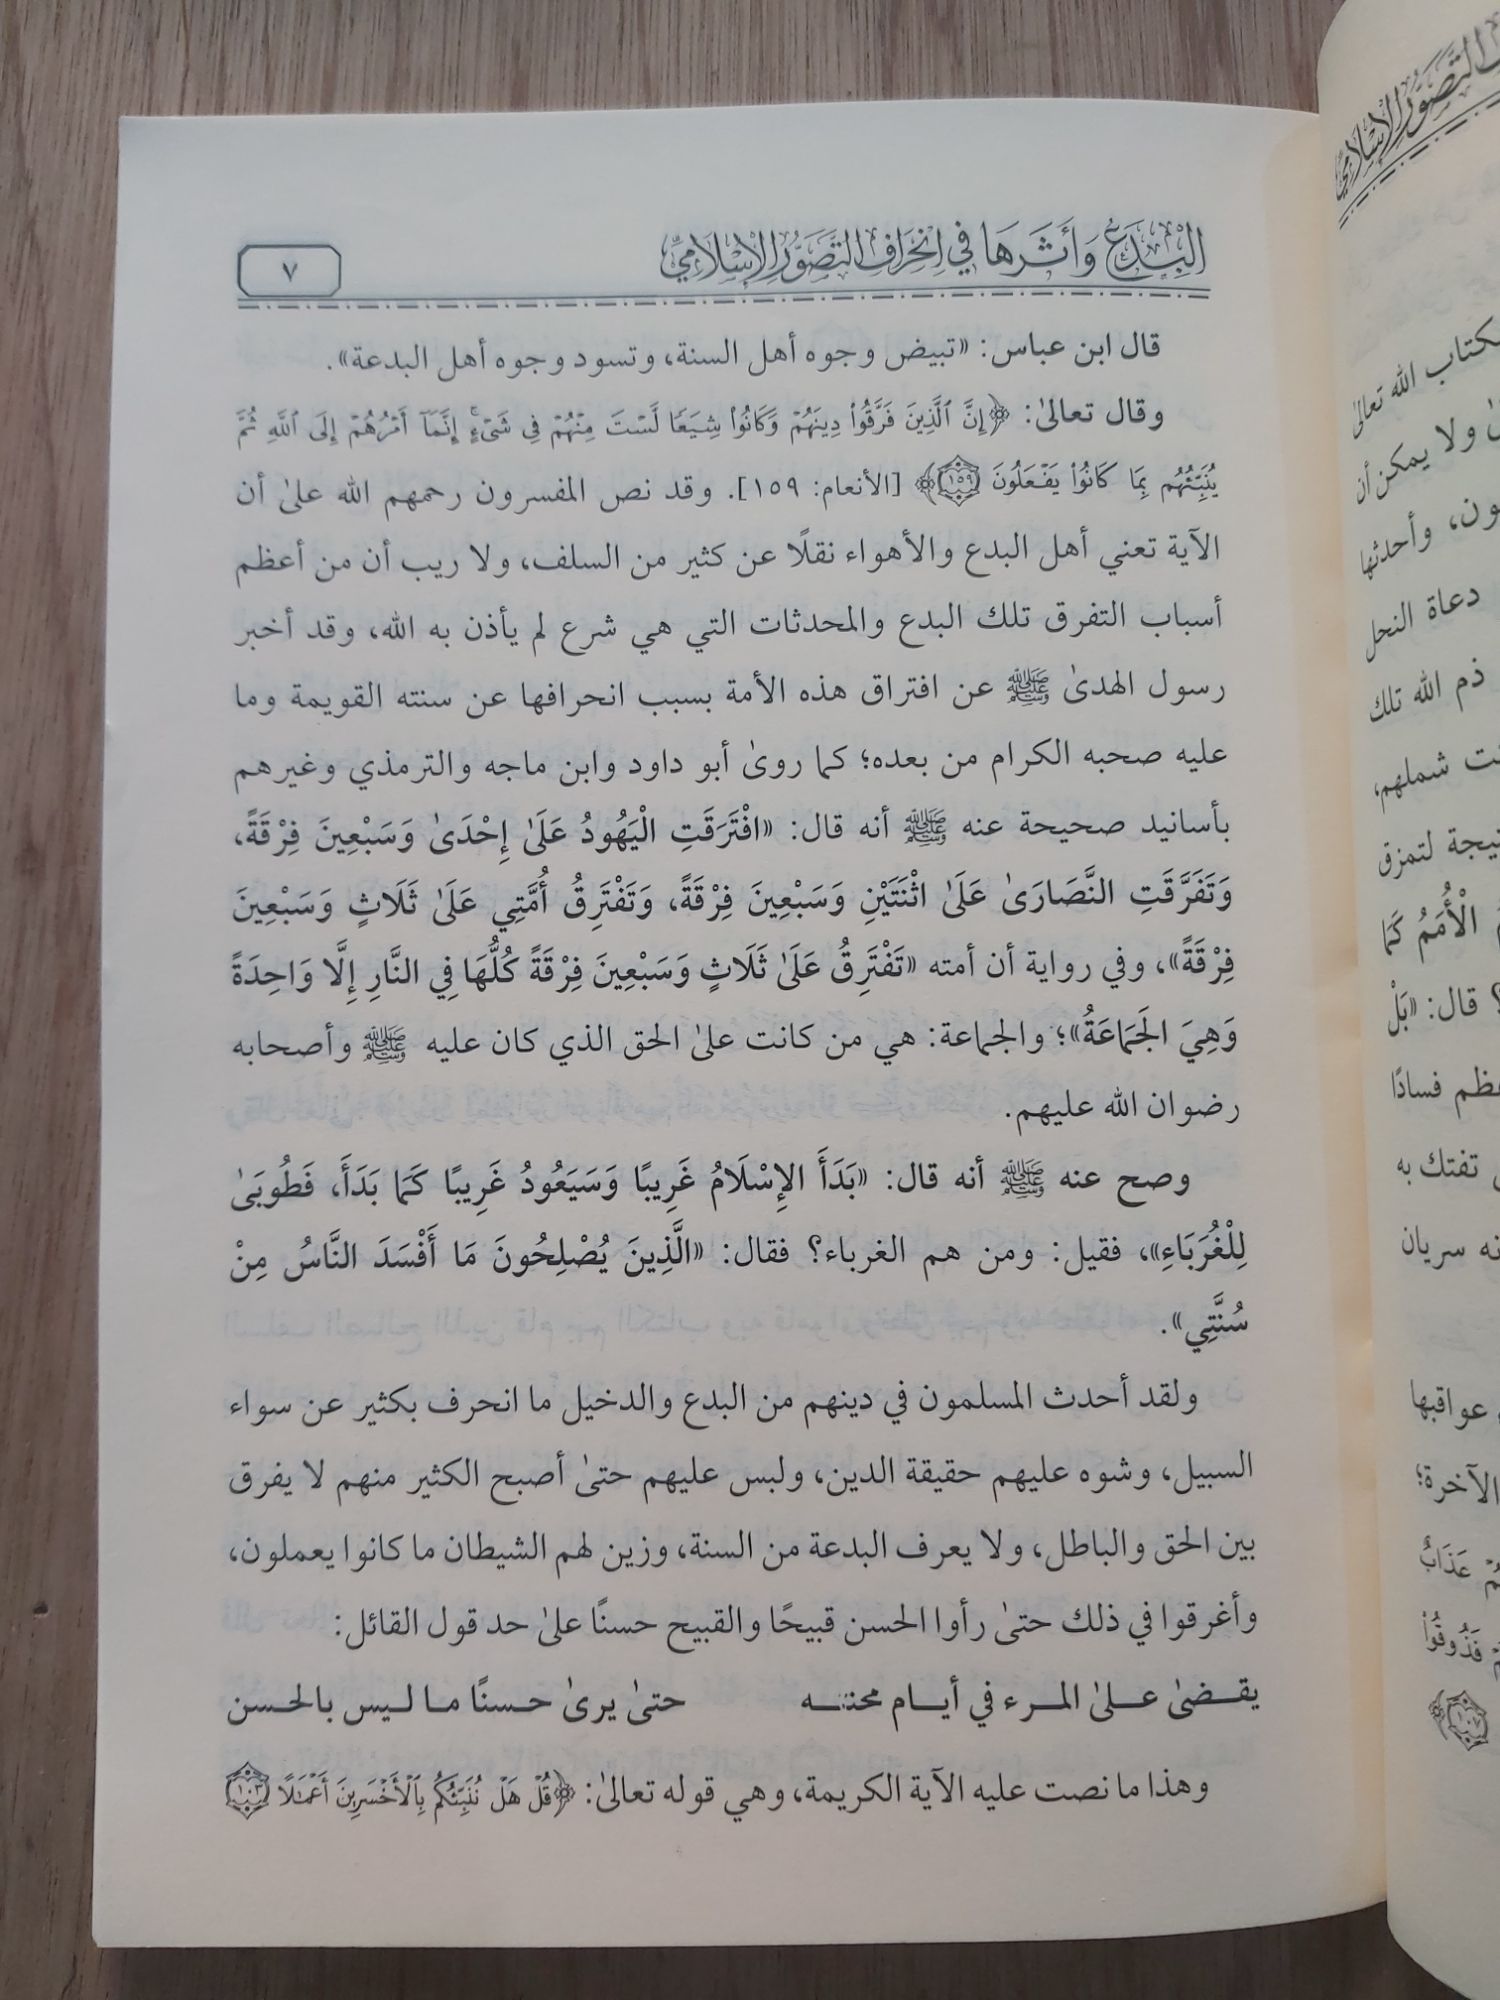 البدع وأثرها في انحراف التصور الإسلامي
٧
قال ابن عباس: «تبيض وجوه أهل السنة، وتسود وجوه أهل البدعة».
وقال تعالىٰ: ﴿إِنَّ ٱلَّذِينَ فَرَّقُوا۟ دِينَهُمْ وَكَانُوا۟ شِيَعًا لَّسْتَ مِنْهُمْ فِى شَىْءٍ ۚ إِنَّمَآ أَمْرُهُمْ إِلَى ٱللَّهِ ثُمَّ
يُنَبِّئُهُم بِمَا كَانُوا۟ يَفْعَلُونَ ١٥٩﴾ [الأنعام: ١٥٩]. وقد نص المفسرون رحمهم الله علىٰ أن
الآية تعني أهل البدع والأهواء نقلًا عن كثير من السلف، ولا ريب أن من أعظم
أسباب التفرق تلك البدع والمحدثات التي هي شرع لم يأذن به الله، وقد أخبر
رسول الهدىٰ ﷺ عن افتراق هذه الأمة بسبب انحرافها عن سنته القويمة وما
عليه صحبه الكرام من بعده؛ كما روىٰ أبو داود وابن ماجه والترمذي وغيرهم
بأسانيد صحيحة عنه ﷺ أنه قال: «افْتَرَقَتِ الْيَهُودُ عَلَىٰ إِحْدَىٰ وَسَبْعِينَ فِرْقَةً،
وَتَفَرَّقَتِ النَّصَارَىٰ عَلَىٰ اثْنَتَيْنِ وَسَبْعِينَ فِرْقَةً، وَتَفْتَرِقُ أُمَّتِي عَلَىٰ ثَلَاثٍ وَسَبْعِينَ
فِرْقَةً»، وفي رواية أن أمته «تَفْتَرِقُ عَلَىٰ ثَلَاثٍ وَسَبْعِينَ فِرْقَةً كُلُّهَا فِي النَّارِ إِلَّا وَاحِدَةً
وَهِيَ الجَمَاعَةُ»؛ والجماعة: هي من كانت علىٰ الحق الذي كان عليه ﷺ وأصحابه
رضوان الله عليهم.
وصح عنه ﷺ أنه قال: «بَدَأَ الإِسْلَامُ غَرِيبًا وَسَيَعُودُ غَرِيبًا كَمَا بَدَأَ، فَطُوبَىٰ
لِلْغُرَبَاءِ»، فقيل: ومن هم الغرباء؟ فقال: «الَّذِينَ يُصْلِحُونَ مَا أَفْسَدَ النَّاسُ مِنْ
سُنَّتِي».
ولقد أحدث المسلمون في دينهم من البدع والدخيل ما انحرف بكثير عن سواء
السبيل، وشوه عليهم حقيقة الدين، ولبس عليهم حتىٰ أصبح الكثير منهم لا يفرق
بين الحق والباطل، ولا يعرف البدعة من السنة، وزين لهم الشيطان ما كانوا يعملون،
وأغرقوا في ذلك حتىٰ رأوا الحسن قبيحًا والقبيح حسنًا علىٰ حد قول القائل:
يقضىٰ علىٰ المرء في أيام محنته حتىٰ يرىٰ حسنًا ما ليس بالحسن
وهذا ما نصت عليه الآية الكريمة، وهي قوله تعالىٰ: ﴿قُلْ هَلْ نُنَبِّئُكُم بِٱلْأَخْسَرِينَ أَعْمَـٰلًا ١٠٣
التصور الإسلامي
كتاب الله تعالىٰ
ولا يمكن أن
ون، وأحدثها
دعاة النحل
ذم الله تلك
شملهم،
لتمزق
الْأُمَمُ كَمَا
؟ قال: «بَلْ
فسادًا
تفتك به
سريان
عواقبها
الآخرة؛
عَذَابٌ
فَذُوقُوا۟
١٠٧﴾